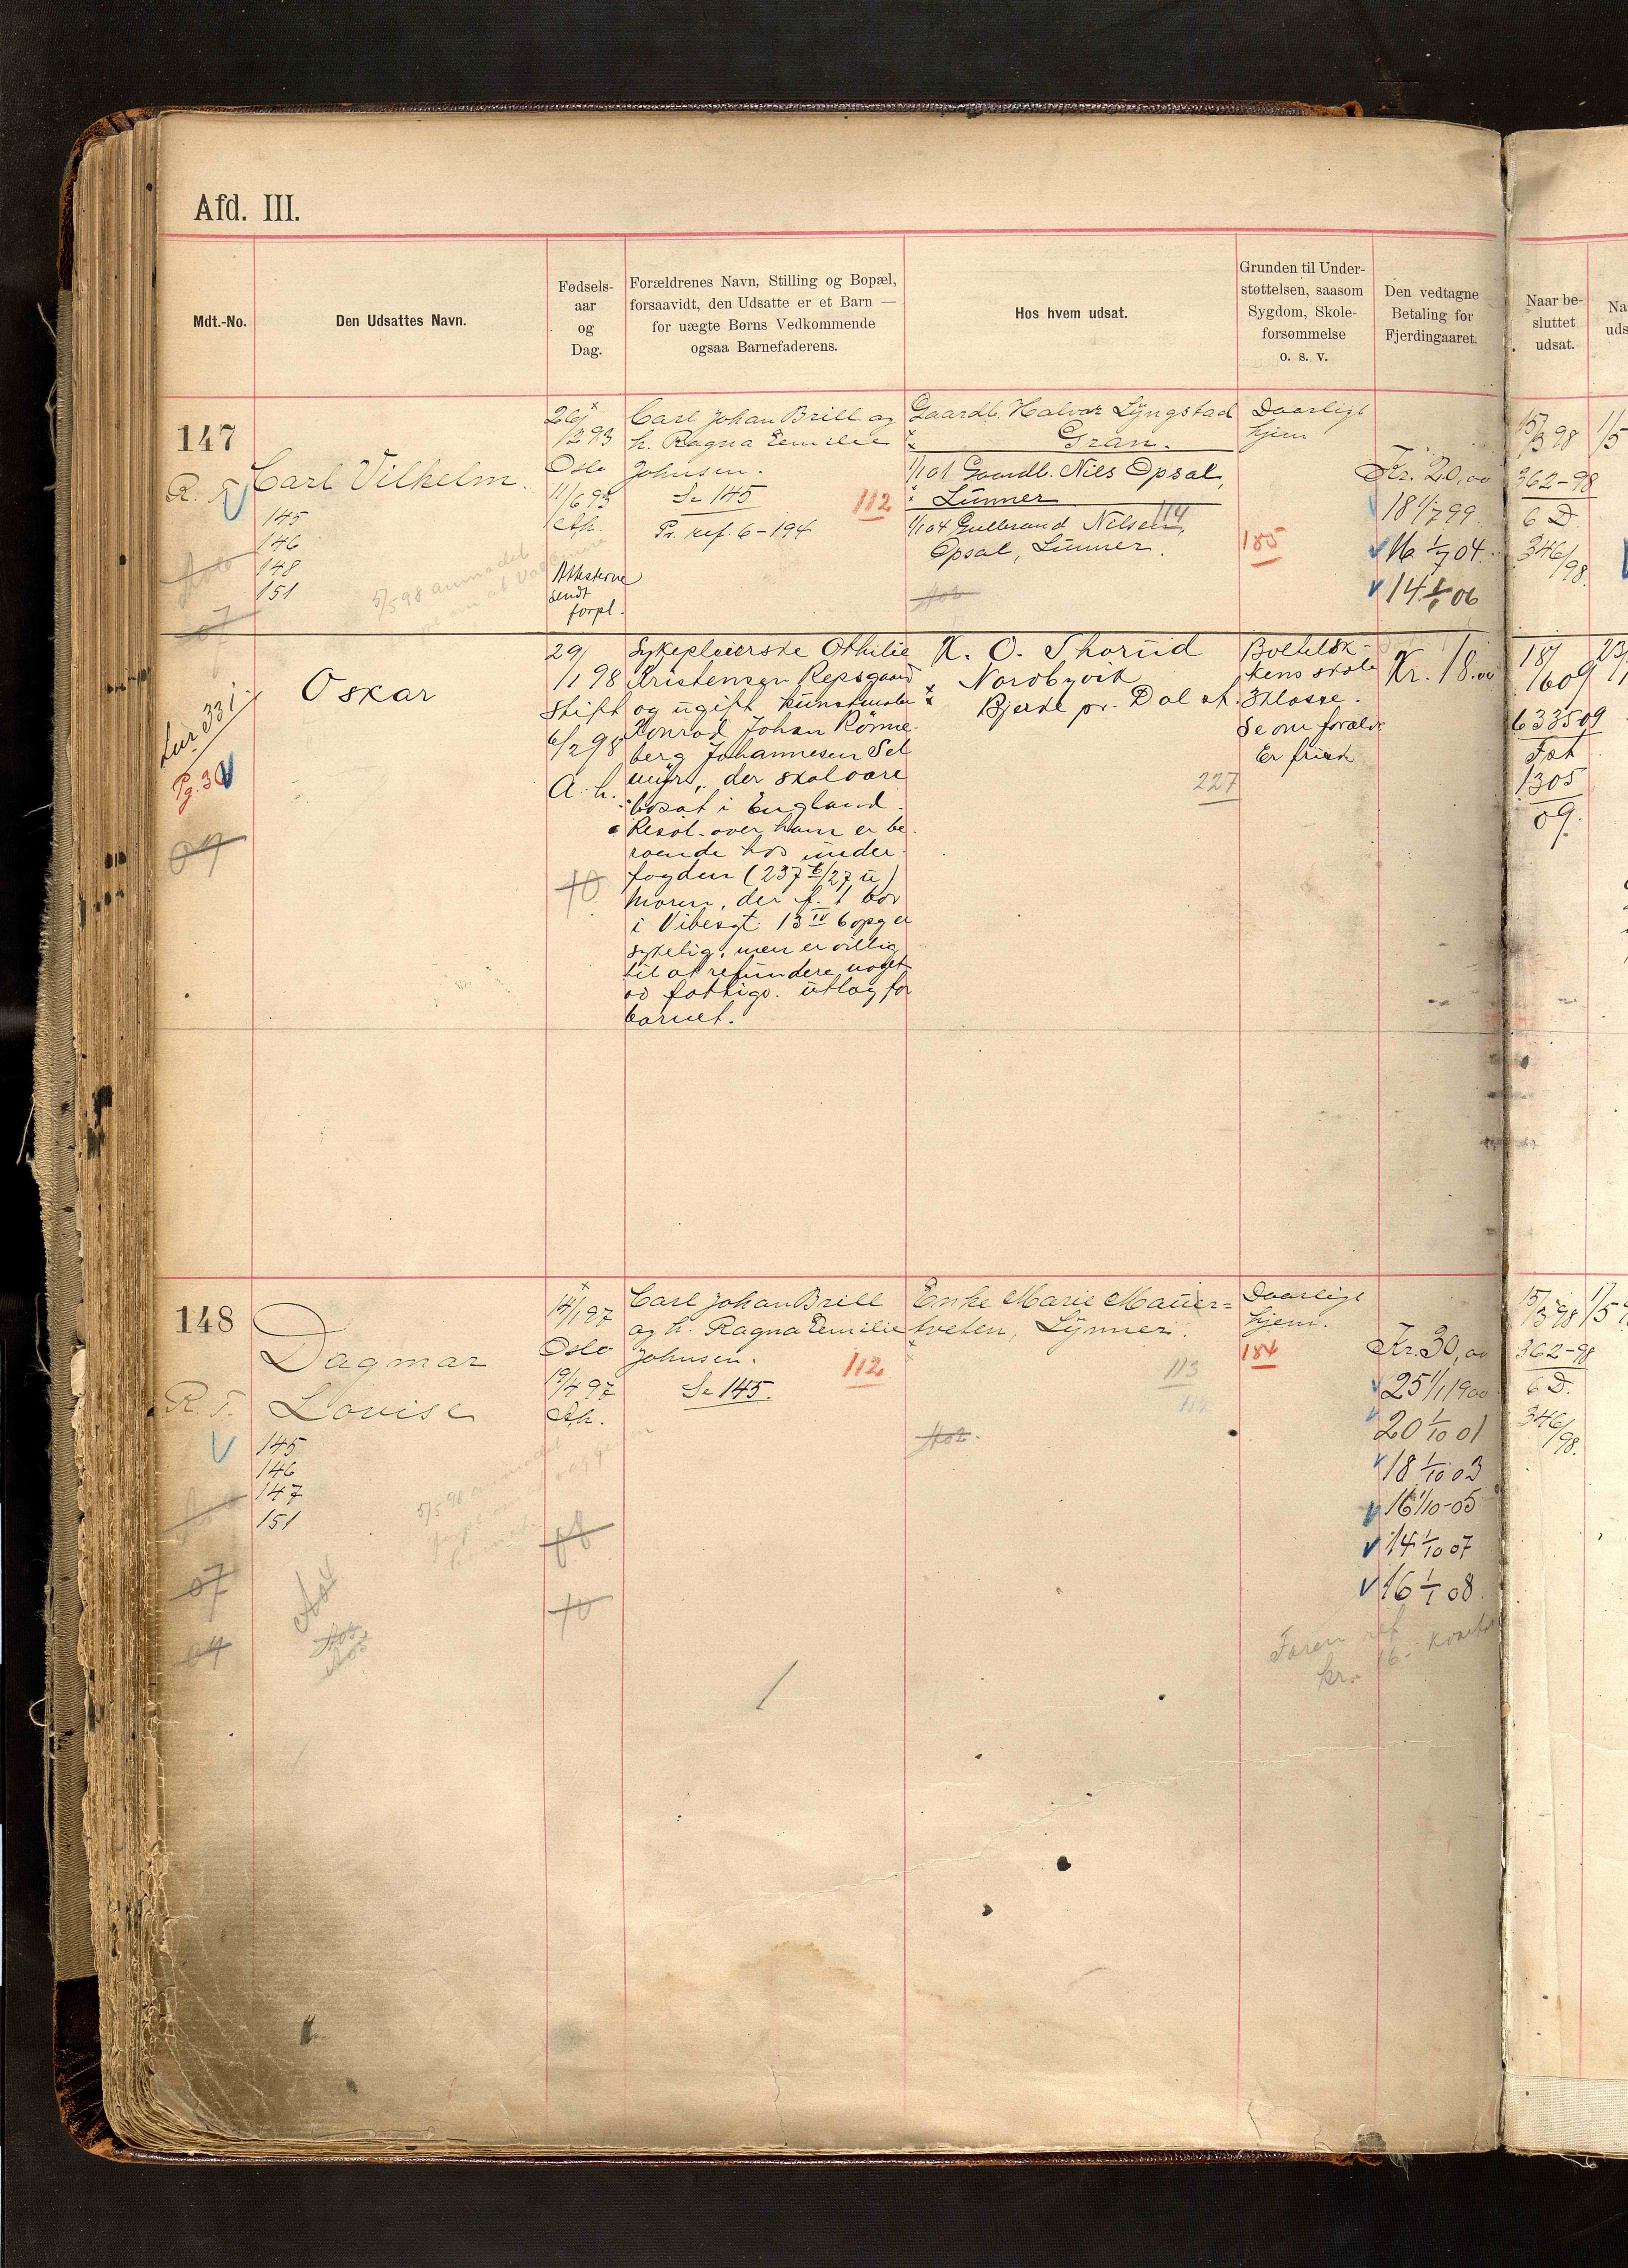 Afd. III.
Mdt.-No.
Den Udsattes Navn.
Fødsels-
aar
og
Dag.
Forældrenes Navn, Stilling og Bopæl,
forsaavidt, den Udsatte er et Barn —
for uægte Børns Vedkommende
ogsaa Barnefaderens.
Hos hvem udsat.
Grunden til Under-
støttelsen, saasom
Sygdom, Skole-
forsømmelse
o. s. v.
Den vedtagne
Betaling for
Fjerdingaaret.
Naar be-
sluttet
udsat.
Na
uds
147
R. F.
Carl Vilhelm.
145
146
148
151
07
5/5 98 anmodet
26/12 93
Oslo
11/6 93
Ah.
Attesterne
sendt
forpl.
Carl Johan Brill og
h. Ragna Emilie
Johnsen.
Se 145
112
Pr. ref. 6-194
Gaardb. Halvor Lÿngstad
Gran.
1/1 01 Gaardb. Niels Opsal,
Lunner
114
1/1 04 Gulbrand Nelsen
Opsal, Lunner.
Daarligt
hjem
185
Kr. 20,00
18 1/7 99
16 1/7 04
14 1/1 06
15/3 98
1/5
362-98
6 D.
346/98.
Pg. 30
09
Oskar
29/1 98
Stift
6/2 98
A. h.
10
Sykepleierske Othilie
Kristensen Repsgaard
og ugift kunstmaler
Konrad Johan Rönne-
berg Johannesen Sel
myr, der skal være
bosat i England.
Resol. over ham er be-
roende hos under-
fogden (237 /27 u)
Moren, der f. t. bor
i Vibesgt. 13 IV 6 opg er
sykelig, men er villig
til at refundere noget
av fattigv. utlæg for
barnet.
K. O. Thorud
Nordbyvik
Bjerke pr. Dal st.
227
Bolteløk-
kens skole
3 klasse.
Se om foræld
Er frisk
Kr. 18.00
18/16 09
23/
633 509
Fat
1305
09.
148
R. F.
Dagmar
Lovise
145
146
147
151
07
09
5/5 98 anmodet
14/1 97
Oslo
19/4 97
Ah.
08
10
Carl Johan Brill
og h. Ragna Emilie
Johnsen.
112
Se 145.
Enke Marie Mauer=
tveten, Lÿnner.
113
112
Daarligt
hjem.
184
Kr. 30,00
25 1/1 1900
20 1/10 01
18 1/10 03
16 1/10-05
14 1/10 07
16 1/1 08.
Faren ref.
kr. 16.-
15/3 98
1/5 9
362-98
6 D.
346/98.